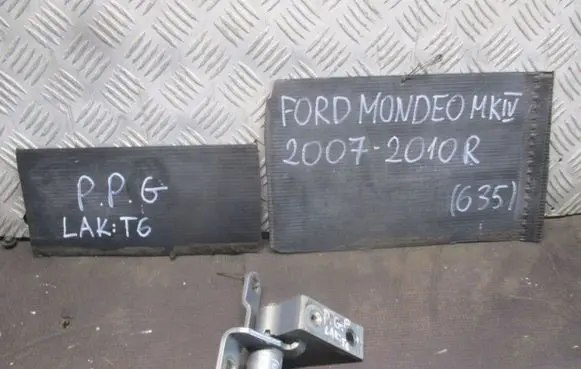 P.P.G
LAK:T6
FORD MONDEO MKIV
2007-2010R
(635)
P.G.P
LAK:T6